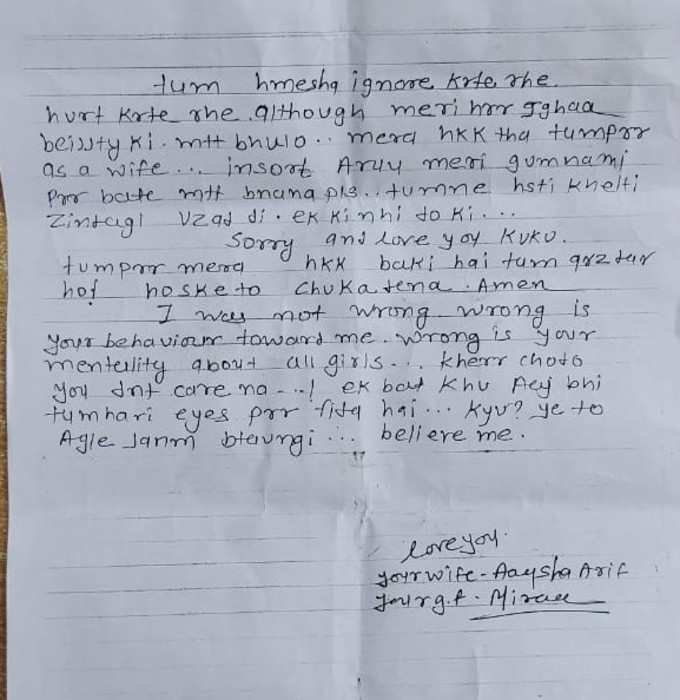 tum hmesha ignore krte rhe.
hurt krte rhe. although meri hrr Jghaa
beissty ki. mtt bhulo.. mera hkk tha tumprr
as a wife... insort Aruu meri gumnami
prr bate mtt bnana pls.. tumne hsti khelti
Zindagi uzad di. ek ki nhi do ki...
sorry and love yoy Kuku.
tumprr mera hkk baki hai tum qrzdar
ho! hoske to chuka dena. Amen
I was not wrong wrong is
your behaviour toward me. wrong is your
mentality about all girls... kherr chodo
you dnt care na...! ek bat khu Aej bhi
tumhari eyes prr fida hai... kyu? ye to
Agle Janm btaungi... believe me.
love you.
your wife - Aaysha Arif
your g.f.